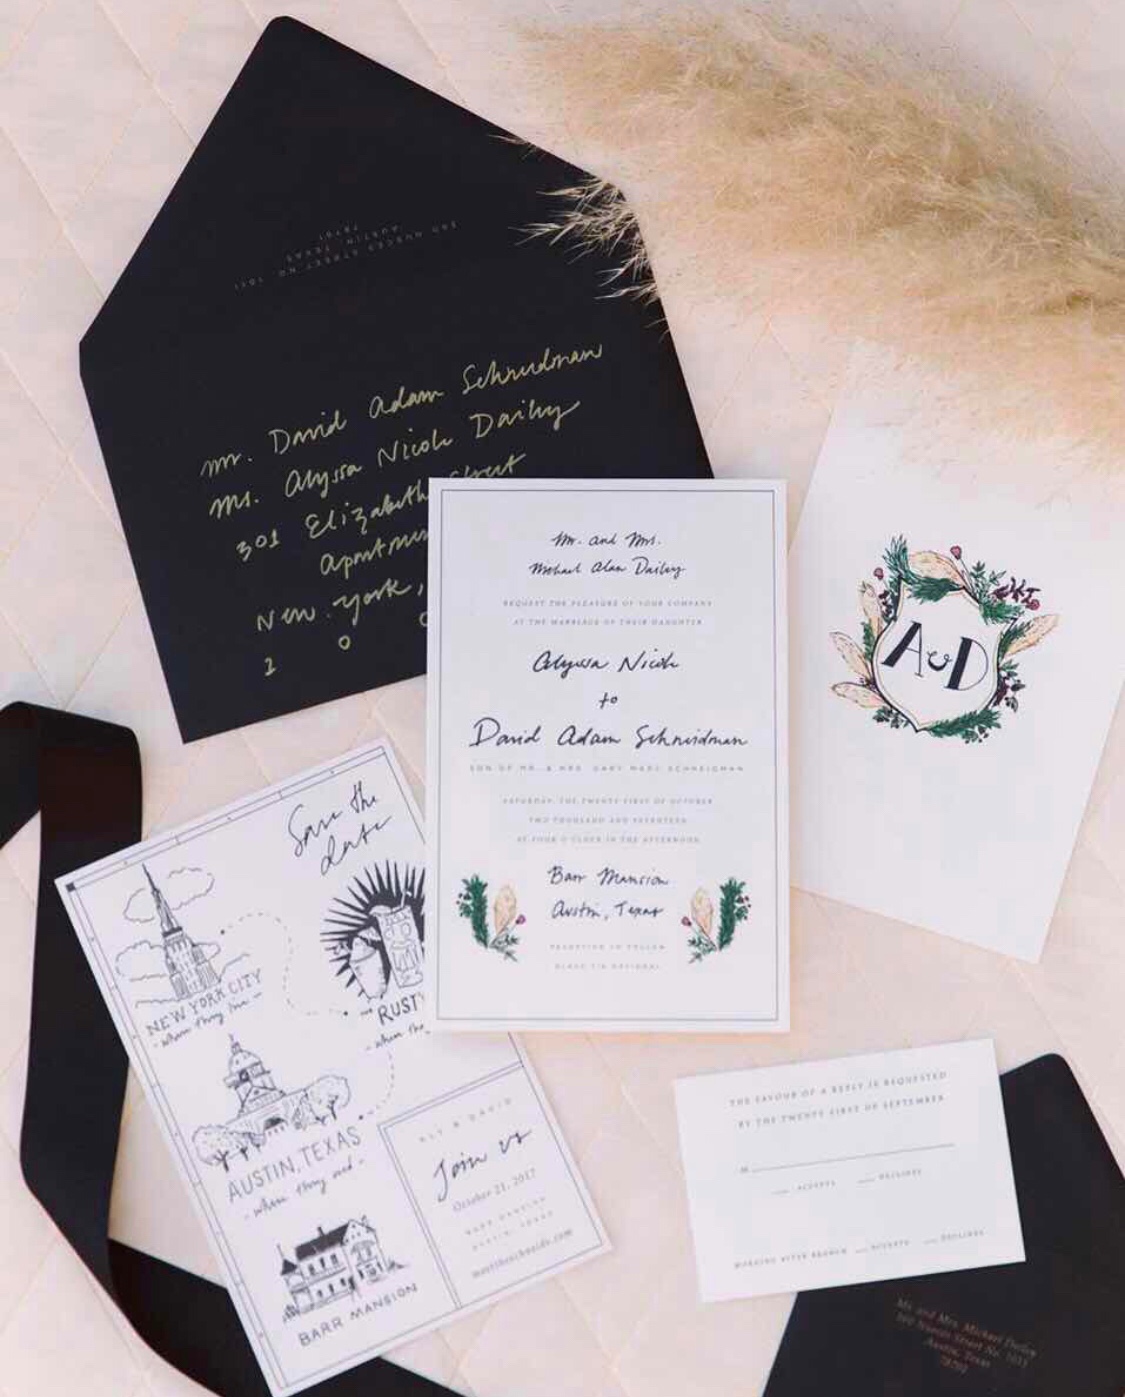 300 NUECES STREET NO. 1011
AUSTIN, TEXAS
78701
Mr. David Adam Schneidman
Ms. Alyssa Nicole Dailey
301 Elizabeth Street
New York,
1 0 0
Mr. and Mrs.
Michael Alan Dailey
REQUEST THE PLEASURE OF YOUR COMPANY
AT THE MARRIAGE OF THEIR DAUGHTER
Alyssa Nicole
to
David Adam Schneidman
SON OF MR. & MRS. GARY MARC SCHNEIDMAN
SATURDAY, THE TWENTY FIRST OF OCTOBER
TWO THOUSAND AND SEVENTEEN
AT FOUR O'CLOCK IN THE AFTERNOON
Barr Mansion
Austin, Texas
RECEPTION TO FOLLOW
BLACK TIE OPTIONAL
A & D
Save the
date
NEW YORK CITY
- where they live -
THE RUSTY
- where the
AUSTIN, TEXAS
- where they wed -
BARR MANSION
ALY & DAVID
Join us
October 21, 2017
BARR MANSION
AUSTIN, TEXAS
THE FAVOUR OF A REPLY IS REQUESTED
BY THE TWENTY FIRST OF SEPTEMBER
M
ACCEPTS DECLINES
MORNING AFTER BRUNCH ACCEPTS DECLINES
Mr. and Mrs. Michael Dailey
300 Nueces Street No. 1011
Austin, Texas
78701